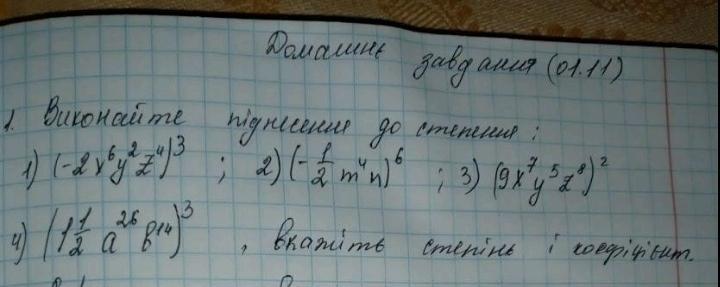 Домашнє завдання (01.11)
1. Виконайте піднесення до степеня:
1) (-2x⁶y²z⁴)³ ; 2) (-1/2 m⁴n)⁶ ; 3) (9x⁷y⁵z⁸)²
4) (1 1/2 a²⁶ b¹⁴)³ , вкажіть степінь і коефіцієнт.